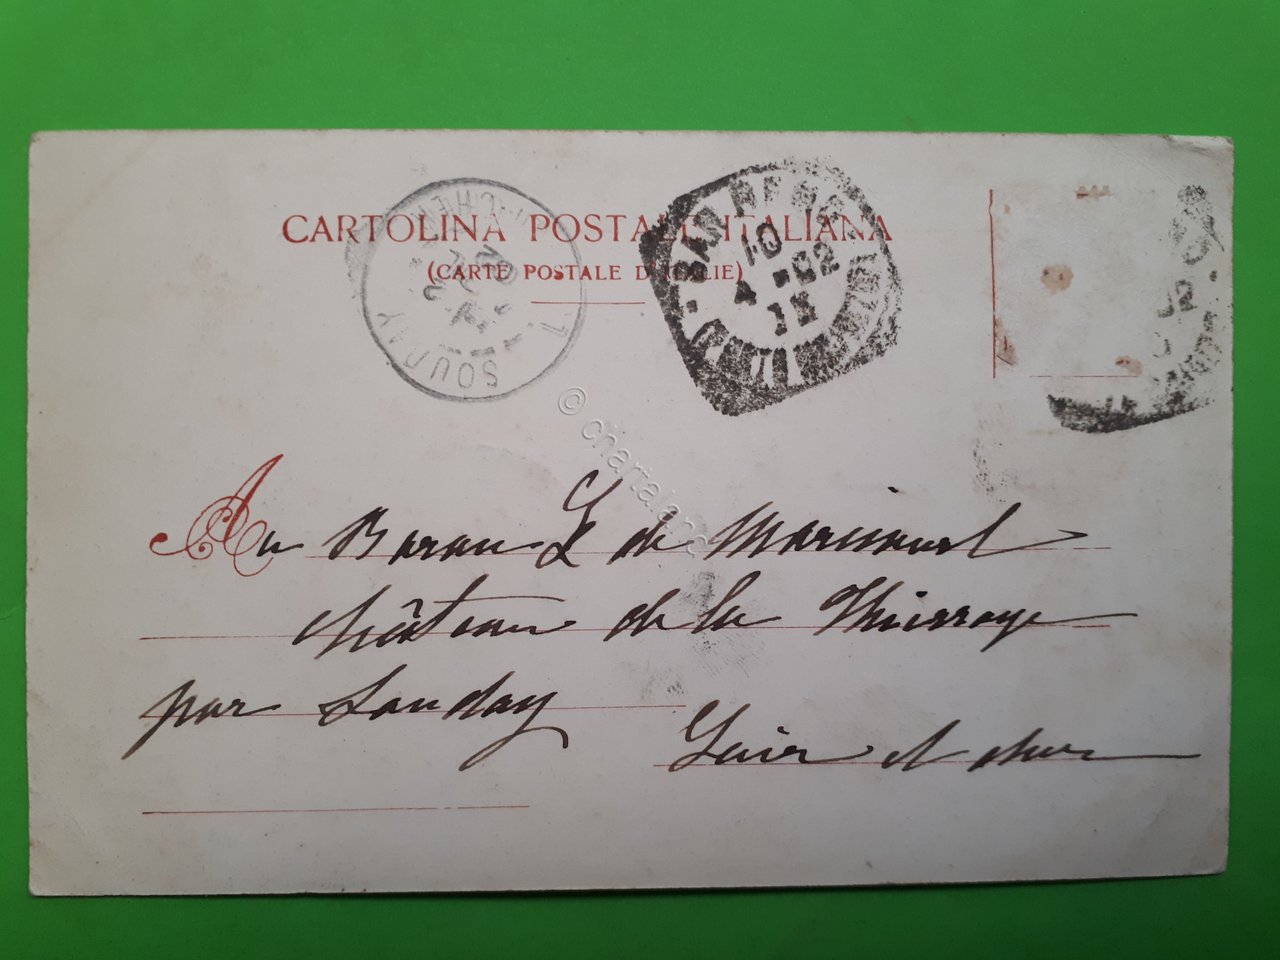 CARTOLINA POSTALE ITALIANA
(CARTE POSTALE D'ITALIE)
SAN REMO
10
4 - 02
1S
© chartaland
Au Baron L de Maricourt
château de la Thierraye
par Landay
Loir et cher